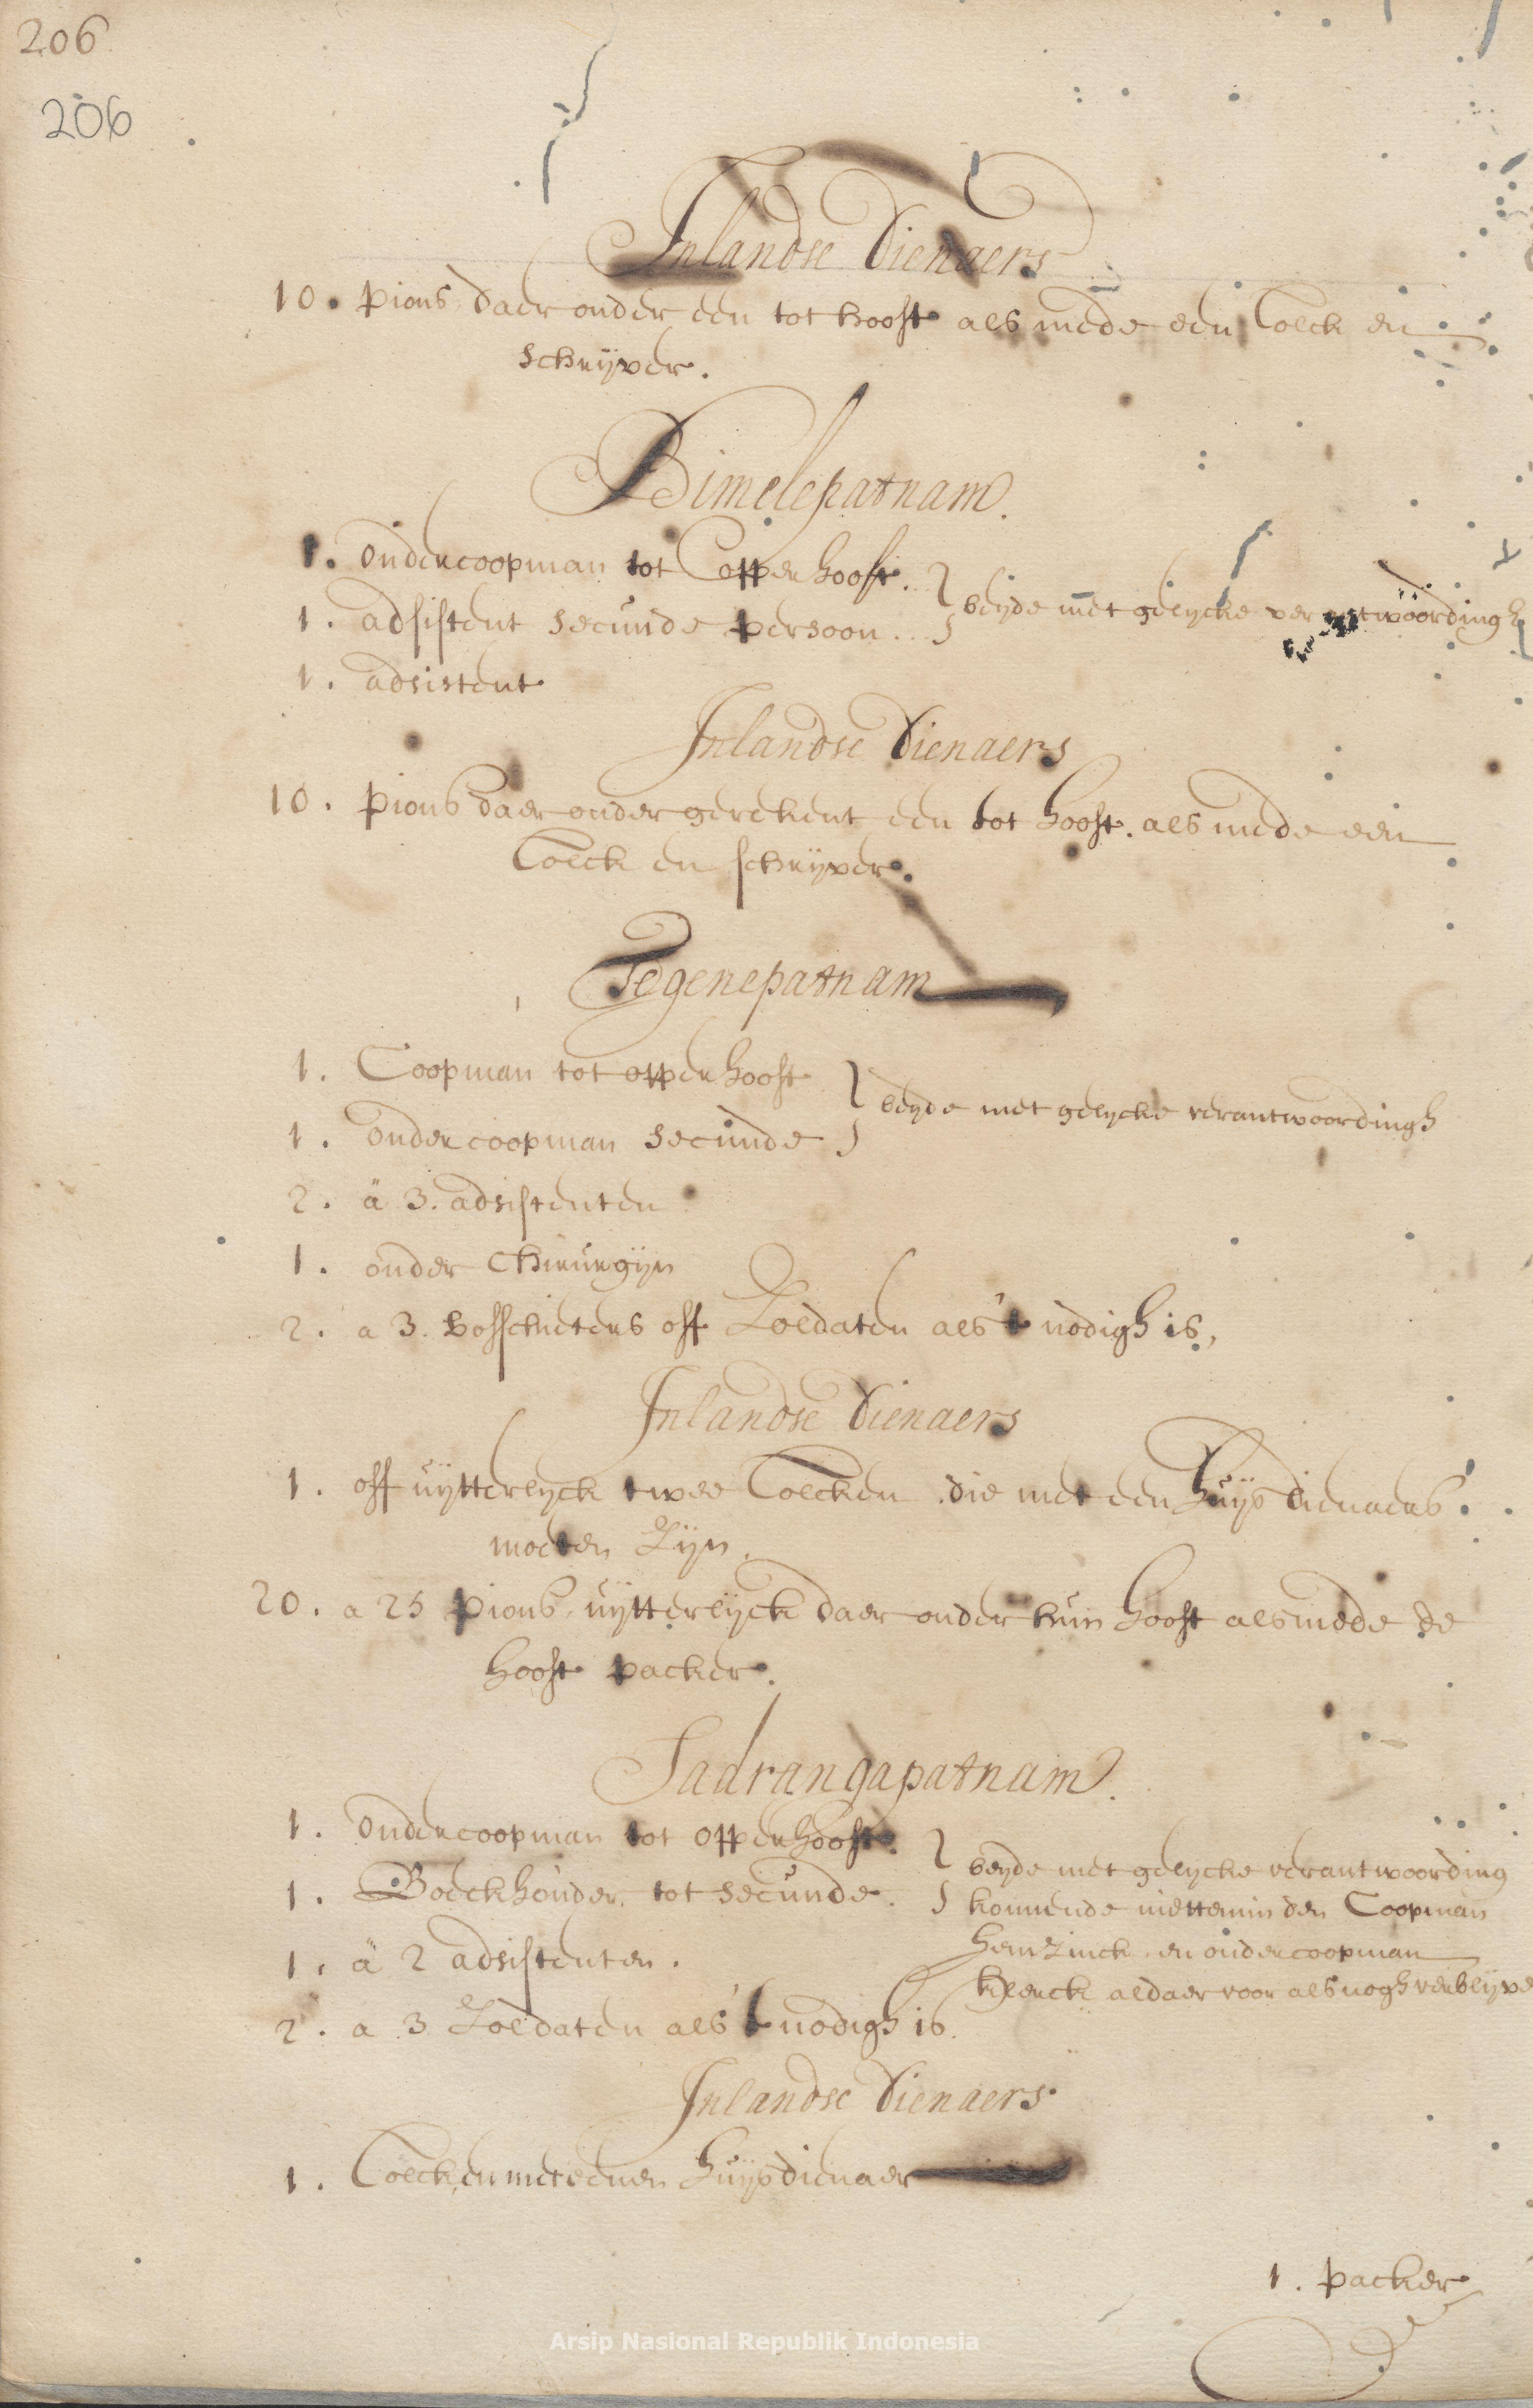 206
206
Inlandse Dienaers
10. pions daer onder een tot hooft als mede een Tolck en
schrijver.
Bimelepatnam.
1. ondercoopman tot Opperhooft.
1. adsistent secunde persoon.. beyde met gelycke verantwoordingh
1. adsistent
Inlandse Dienaers
10. pions daer onder gerekent een tot hooft. als mede een
Tolck en schrijver.
Tegenepatnam
1. Coopman tot opperhooft
1. ondercoopman secunde beyde met gelycke verantwoordingh
2. á 3. adsistenten
1. onder Chirurgijn
2. a 3. bosschieters off Zoldaten als 't nodigh is,
Inlandse Dienaers
1. off uytterlyck twee Tolcken die met een huys dienaers
moeten Zijn.
20. a 25 pions, uytterlyck daer onder hun hooft als mede de
hooft packer.
Sadrangapatnam.
1. ondercoopman tot opperhooft.
1. Boeckhouder. tot secunde. beyde met gelycke verantwoording
komende niettemin den Coopman
1. á 2 adsistenten. en ondercoopman
Klenck aldaer voor als nogh verblyve
2. a 3 Zoldaten als 't nodigh is.
Inlandse Dienaers
1. Tolck, en met eenen huysdienaer
1. packer
Arsip Nasional Republik Indonesia